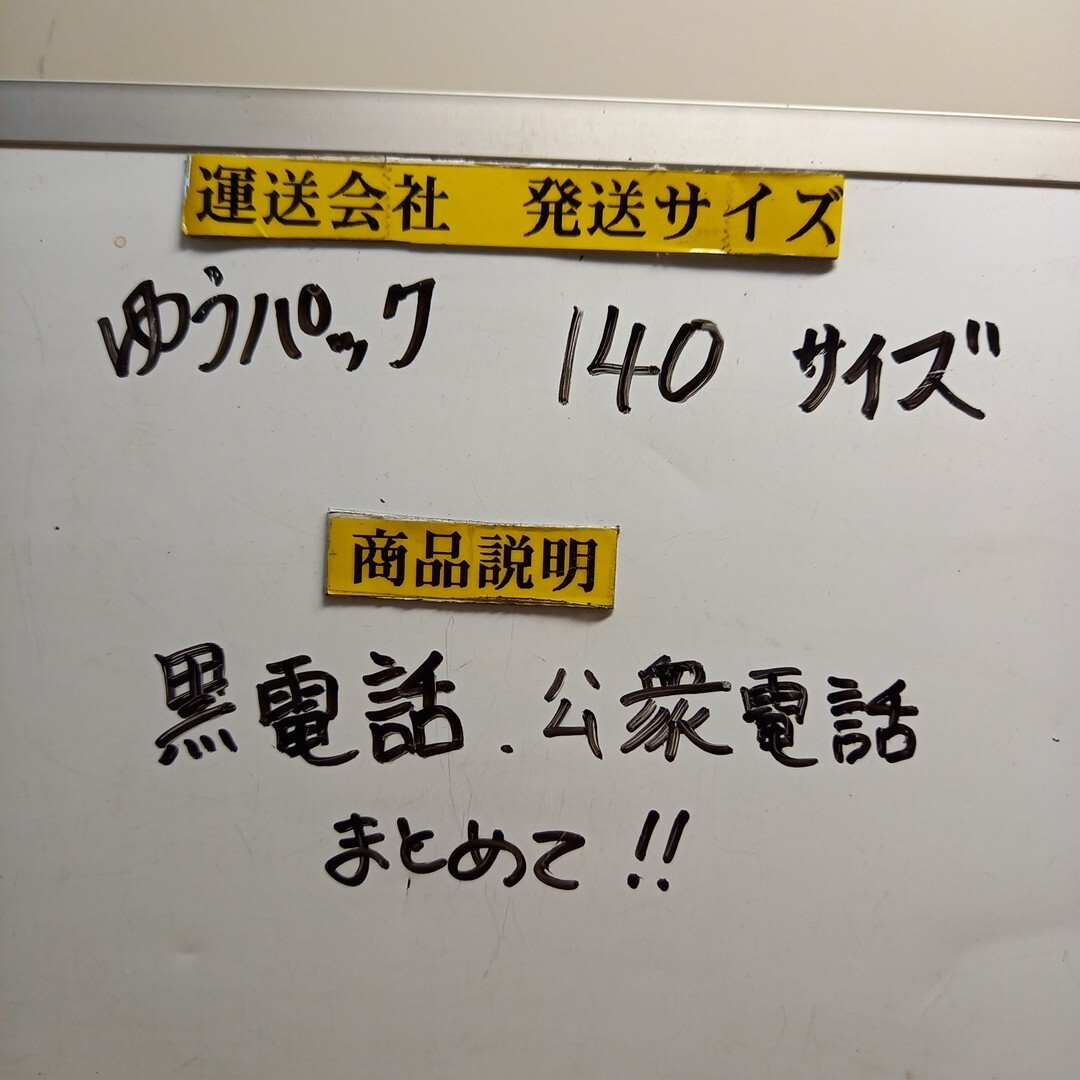 運送会社　発送サイズ
ゆうパック 140 サイズ
商品説明
黒電話.公衆電話
まとめて!!